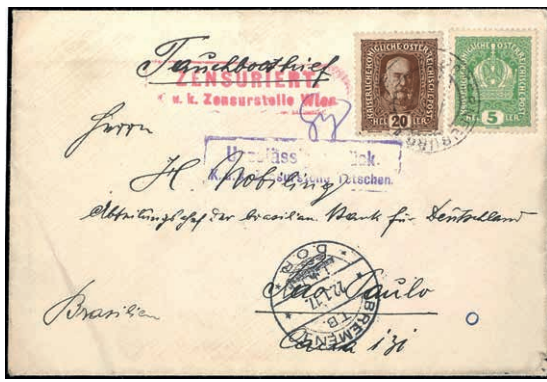 Tauchbootbrief
ZENSURIERT
k. u. k. Zensurstelle Wien
KAISERLICHE KÖNIGLICHE ÖSTERREICHISCHE POST
20
HELLER
KAISERLICHE KÖNIGLICHE ÖSTERREICHISCHE POST
5
HELLER
Herrn
Unzulässig zurück.
K.u.k. Zensurstelle Tetschen.
H. Nobiling
Abteilungschef der brasilian. Bank für Deutschland
São Paulo
Brasilien
Caixa 131
BREMEN
T.B.